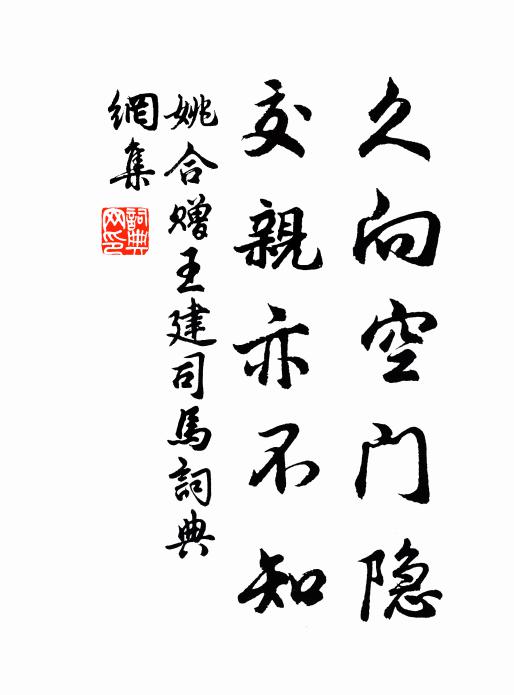 久向空门隐
交親亦不知
姚合赠王建司馬詞典
網集
詞典
网印